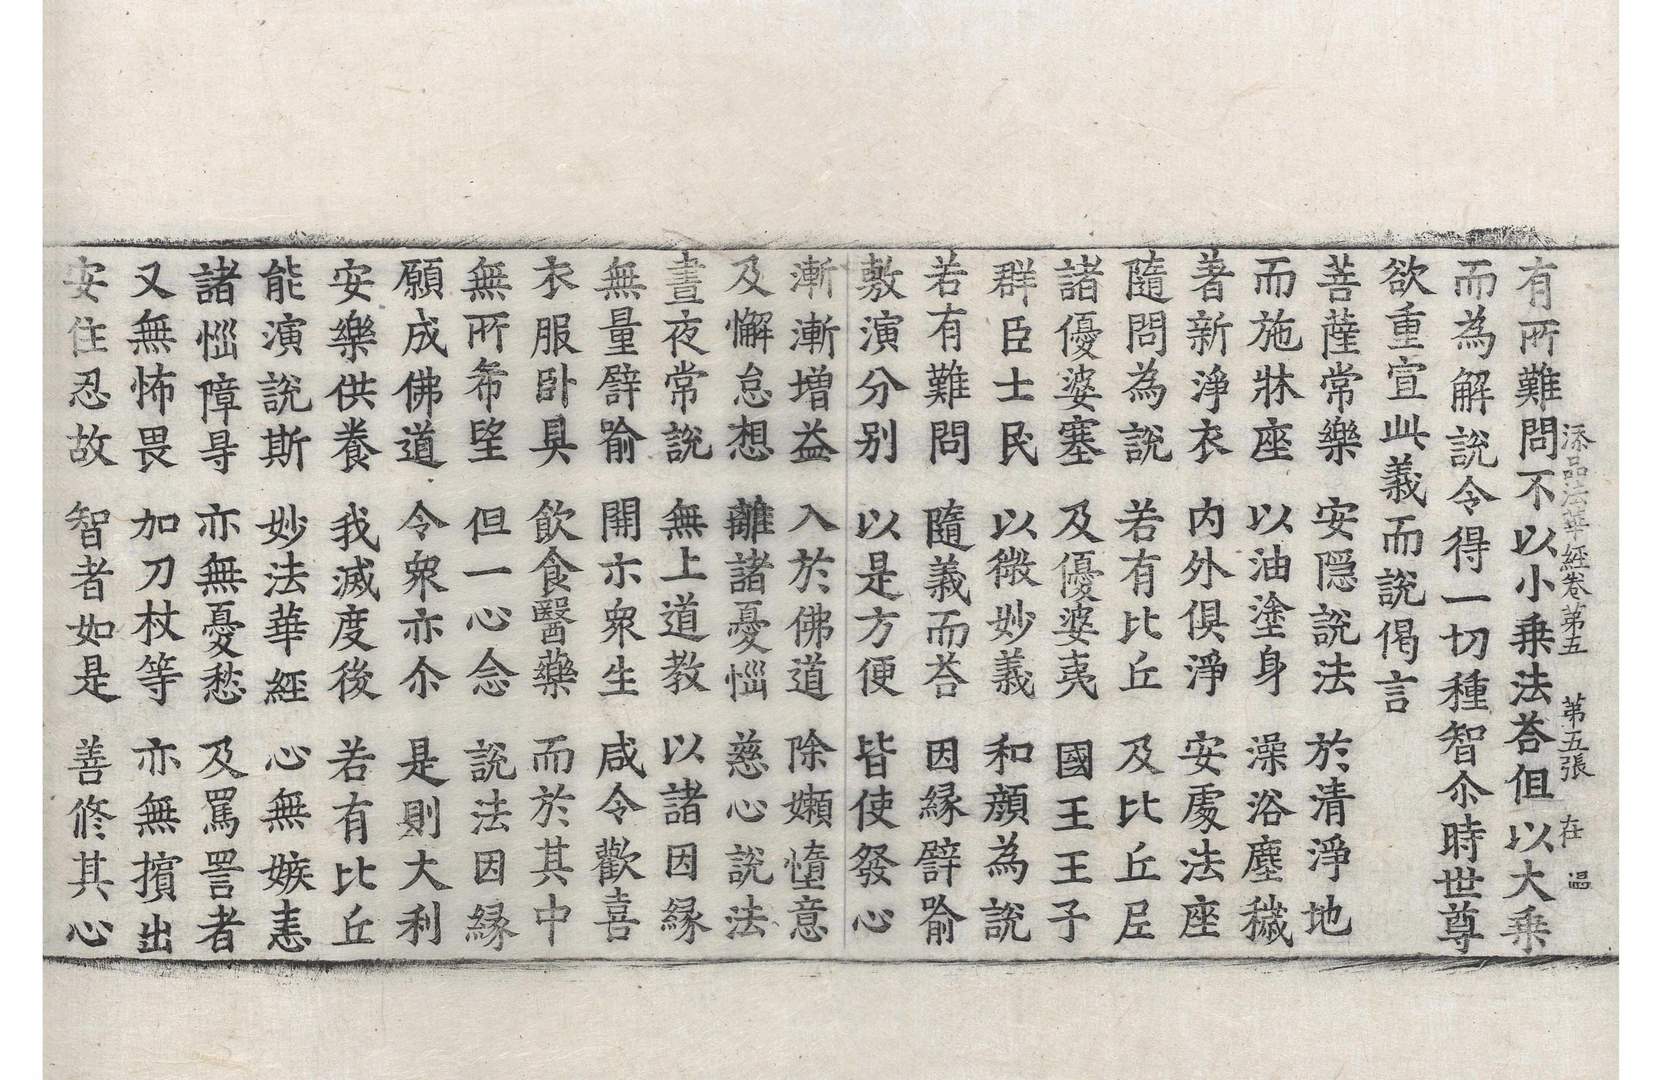 添品法華經卷第五 第五張 在
有所難問不以小乗法荅但以大乗
而為解說令得一切種智尒時世尊
欲重宣此義而說偈言
菩薩常樂 安隱說法 於清淨地
而施牀座 以油塗身 澡浴塵穢
著新淨衣 內外俱淨 安處法座
隨問為說 若有比丘 及比丘尼
諸優婆塞 及優婆夷 國王王子
群臣士民 以微妙義 和顔為說
若有難問 隨義而荅 因縁譬喻
敷演分別 以是方便 皆使發心
漸漸増益 入於佛道 除嬾惰意
及懈怠想 離諸憂惱 慈心說法
晝夜常說 無上道教 以諸因縁
無量譬喻 開示衆生 咸令歡喜
衣服卧具 飲食醫藥 而於其中
無所希望 但一心念 說法因縁
願成佛道 令衆亦尒 是則大利
安樂供養 我滅度後 若有比丘
能演說斯 妙法華經 心無嫉恚
諸惱障㝵 亦無憂愁 及罵詈者
又無怖畏 加刀杖等 亦無擯出
安住忍故 智者如是 善修其心